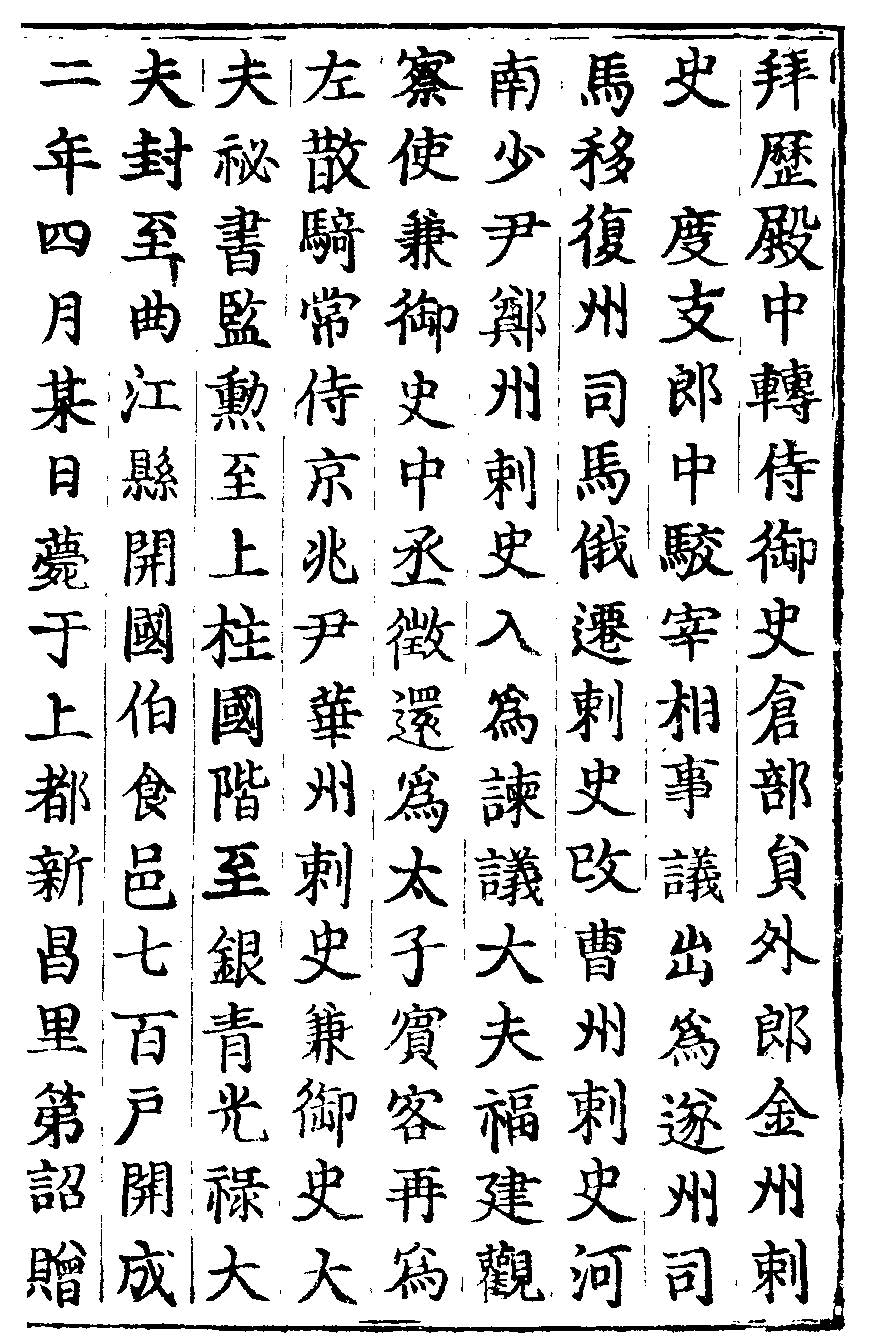 拜歷殿中轉侍御史倉部員外郎金州刺
史　度支郎中駮宰相事議出爲遂州司
馬移復州司馬俄遷刺史改曹州刺史河
南少尹鄭州刺史入爲諫議大夫福建觀
察使兼御史中丞徵還爲太子賓客再爲
左散騎常侍京兆尹華州刺史兼御史大
夫祕書監勳至上柱國階至銀青光祿大
夫封至曲江縣開國伯食邑七百戶開成
二年四月某日薨于上都新昌里第詔贈